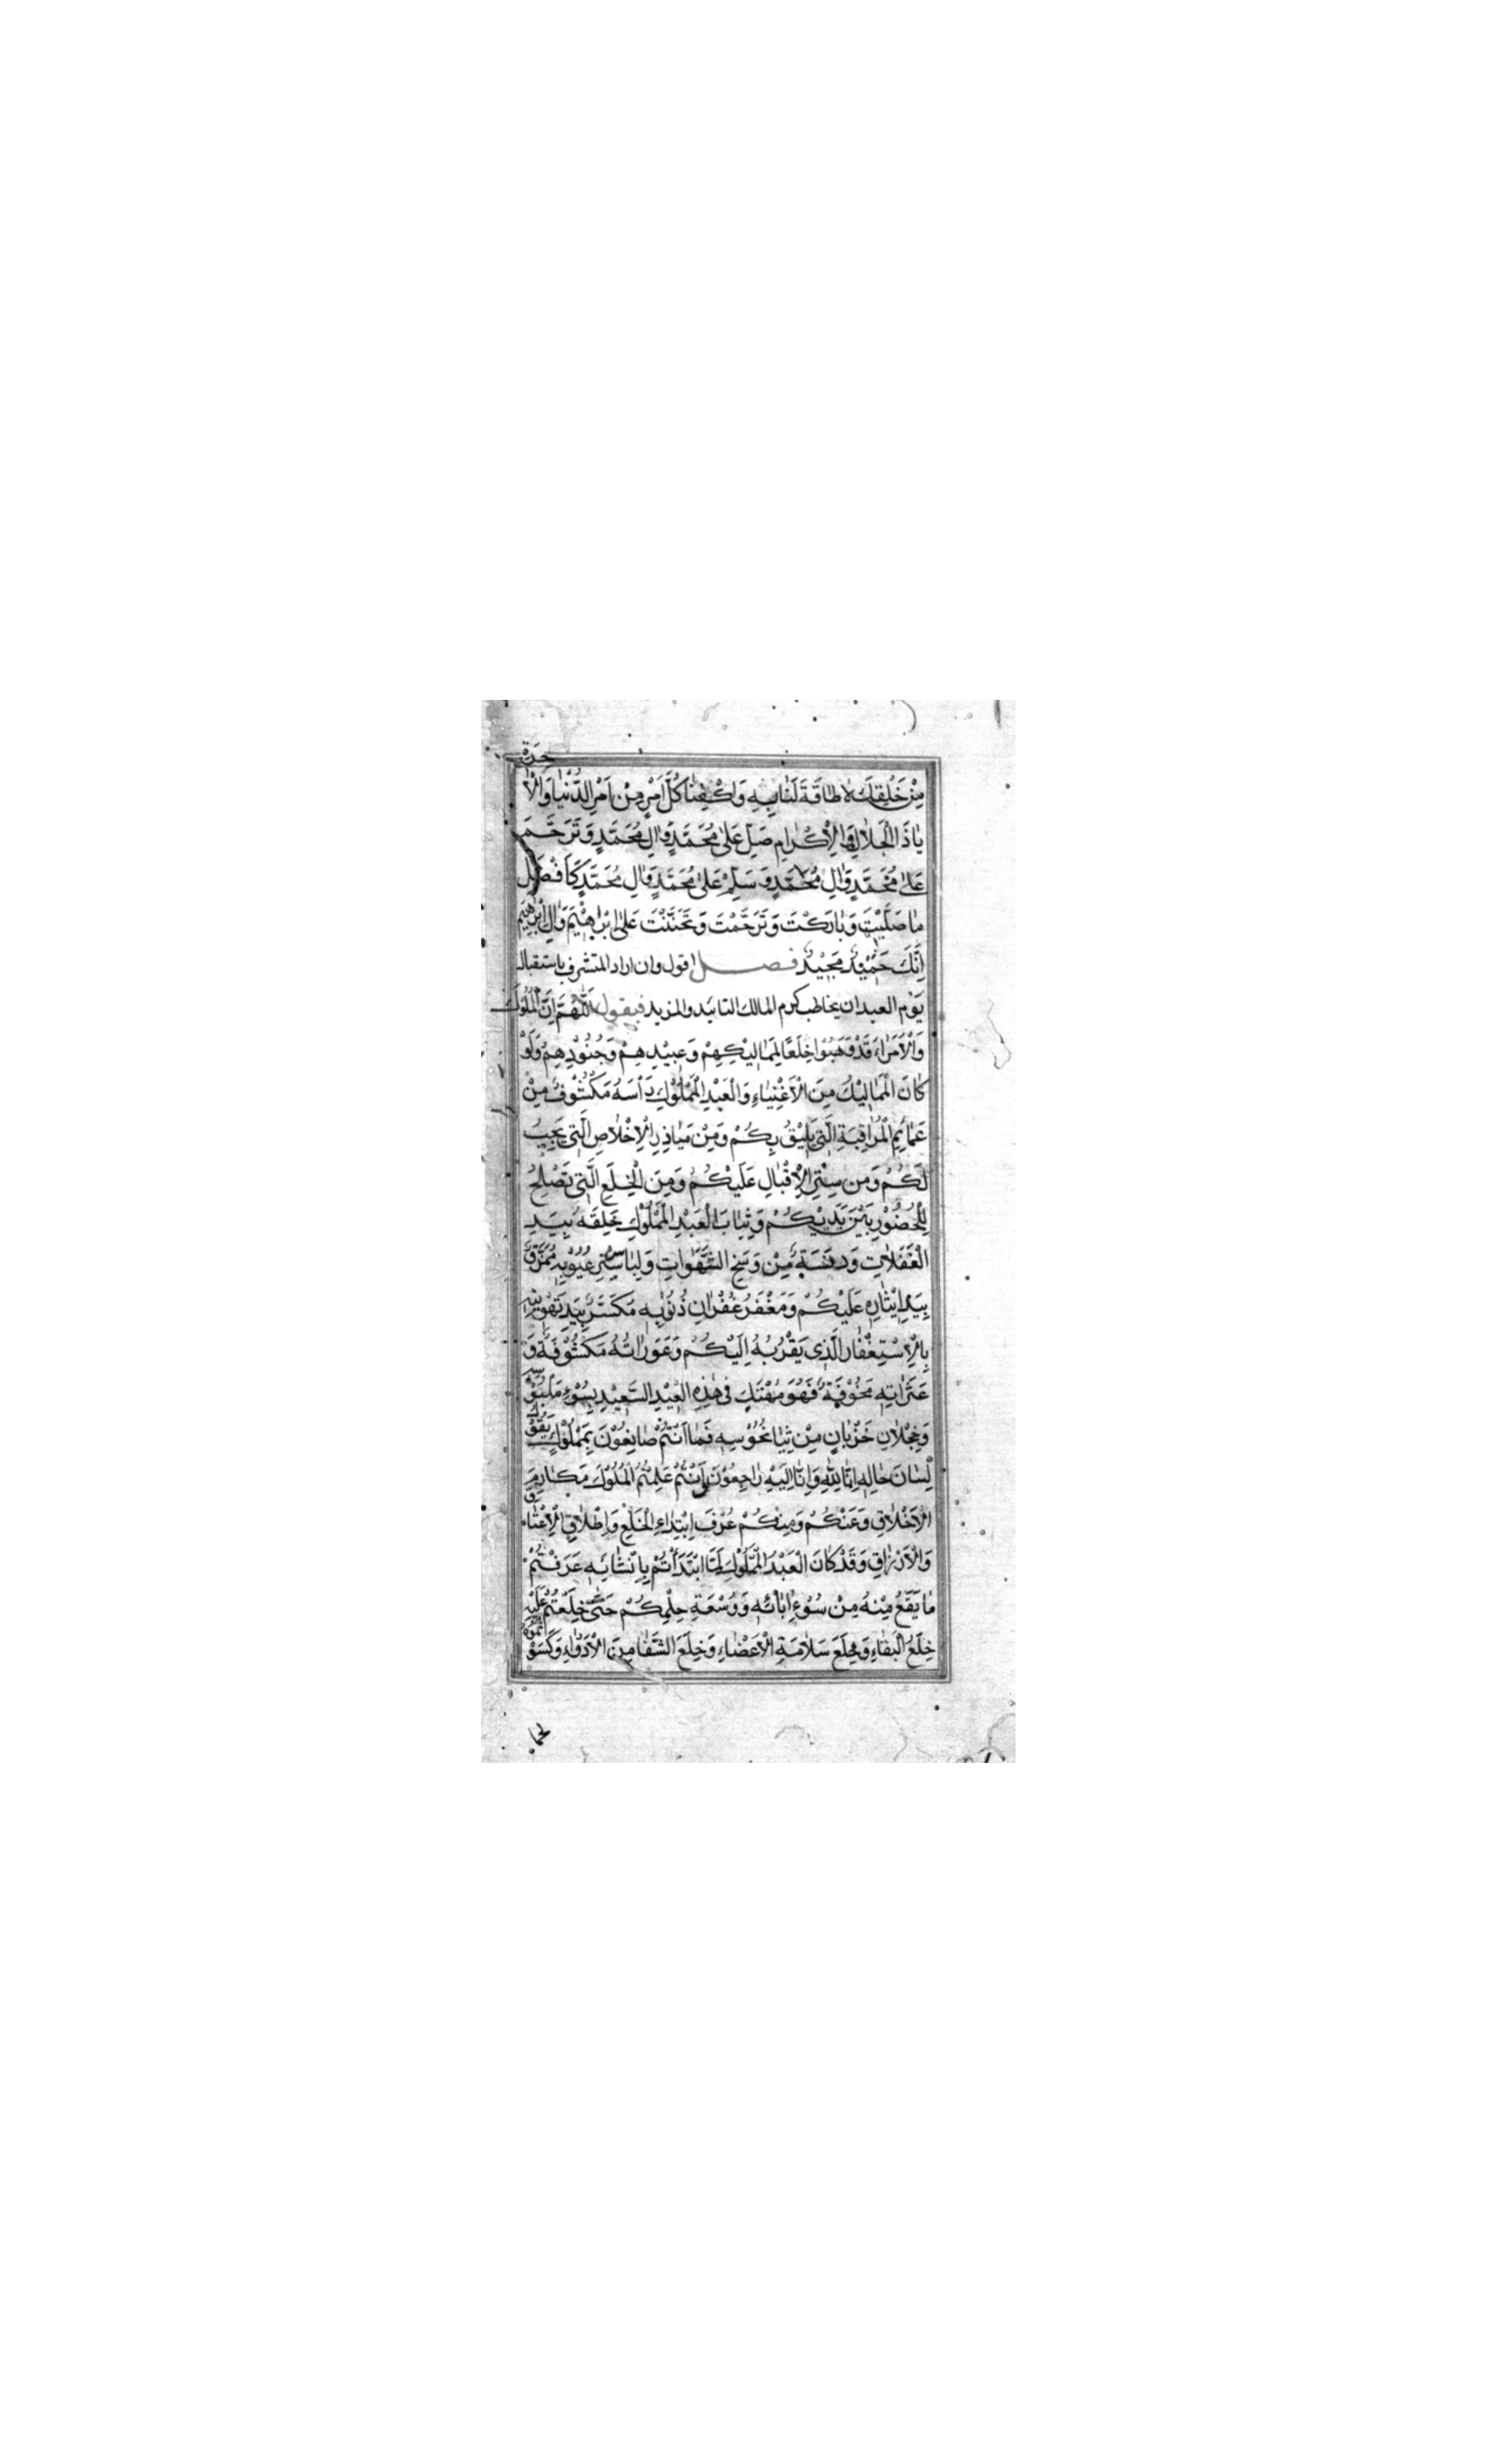 مِنْ خَلْقِكَ لَا طَاقَةَ لَنَا بِهِ وَاكْفِنَا كُلَّ اَمْرٍ مِنْ اَمْرِ الدُّنْيَا وَالْاٰخِرَةِ
يَا ذَا الْجَلَالِ وَالْاِكْرَامِ صَلِّ عَلٰى مُحَمَّدٍ وَاٰلِ مُحَمَّدٍ وَتَرَحَّمْ
عَلٰى مُحَمَّدٍ وَاٰلِ مُحَمَّدٍ وَسَلِّمْ عَلٰى مُحَمَّدٍ وَاٰلِ مُحَمَّدٍ كَاَفْضَلِ
مَا صَلَّيْتَ وَبَارَكْتَ وَتَرَحَّمْتَ وَتَحَنَّنْتَ عَلٰى اِبْرَاهِيْمَ وَاٰلِ اِبْرٰهِيْمَ
اِنَّكَ حَمِيْدٌ مَجِيْدٌ فصل اقول وان اراد المتشرف باستقبال
يَوْم العيد ان يخاطب كرم المالك التاييد والمزيد فيقول اَللّٰهُمَّ اِنَّ الْمُلُوْكَ
وَالْاُمَرَاءَ قَدْ وَهَبُوْا خِلَعًا لِمَمَالِيْكِهِمْ وَعَبِيْدِهِمْ وَجُنُوْدِهِمْ وَلَوْ
كَانَ الْمَمَالِيْكُ مِنَ الْاَغْنِيَاءِ وَالْعَبْدِ الْمَمْلُوْكِ رَاْسُهُ مَكْشُوْفٌ مِنْ
عَمَائِمِ الْمُرَاقِبَةِ الَّتِي يَلِيْقُ بِكُمْ وَمِنْ مَيَاذِرِ الْاِخْلَاصِ الَّتِي يَجِبُ
لَكُمْ وَمِنْ سِتْرِ الْاِقْبَالِ عَلَيْكُمْ وَمِنَ الْخِلَعِ الَّتِي تَصْلِحُ
لِلْحُضُوْرِ بَيْنَ يَدَيْكُمْ وَثِيَابَ الْعَبْدِ الْمَمْلُوْكِ خَلِقَةٌ بِيَدِ
الْغَفَلَاتِ وَدنسَة مِنْ وَسَخِ الشَّهَوَاتِ وَلِبَاسُ سِتْرِ عُيُوْبِهِ مُمَزَّقٌ
بِيَدِ اِيْثَارِهِ عَلَيْكُمْ وَمَغْفَرُ غُفْرَانِ ذُنُوْبِهِ مُكَسَّرٌ بِيَدِ تَهْوِيْنِهِ
بِالْاِسْتِغْفَارِ الَّذِي يَقْرُبُهُ اِلَيْكُمْ وَعَوَرَاتُهُ مَكْشُوْفَةٌ وَ
عَثَرَاتِهِ مَخُوْفَةٌ فَهُوَ مُهْتَكٌ فِي هٰذِهِ الْعِيْدِ السَّعِيْدِ بِسُوْءِ مَلْبُوْسِهِ
وَخَجْلَانِ خَزْيَانِ مِنْ ثِيَابِ نُحُوْسِهِ فَمَا اَنْتُمْ صَانِعُوْنَ بِمَمْلُوْكٍ يَقُوْلُ
لِسَانُ حَالِهِ اِنَّا لِلّٰهِ وَاِنَّا اِلَيْهِ رَاجِعُوْنَ وَاَنْتُمْ عَلَّمْتُمُ الْمُلُوْكَ مَكَارِمَ
الْاَخْلَاقِ وَعَنْكُمْ وَمِنْكُمْ عُرِفَ اِبْتِدَاءُ الْخِلَعِ وَاِطْلَاقِ الْاِعْتَاقِ
وَالْاَرْزَاقِ وَقَدْ كَانَ الْعَبْدُ الْمَمْلُوْكُ لَمَّا ابْتَدَأْتُمْ بِاِنْشَائِهِ عَرَفْتُمْ
مَا يَقَعُ مِنْهُ مِنْ سُوْءِ اِبَائِهِ وَوُسْعَةِ حِلْمِكُمْ حَتّٰى خِلَعْتُمْ عَلَيْهِ
خِلَعَ الْبَقَاءِ وَخِلَعَ سَلَامَةِ الْاَعْضَاءِ وَخِلَعَ الشِّفَا مِنَ الْاَدْوَاءِ وَكَسَوْتُمُوْهُ
لحما